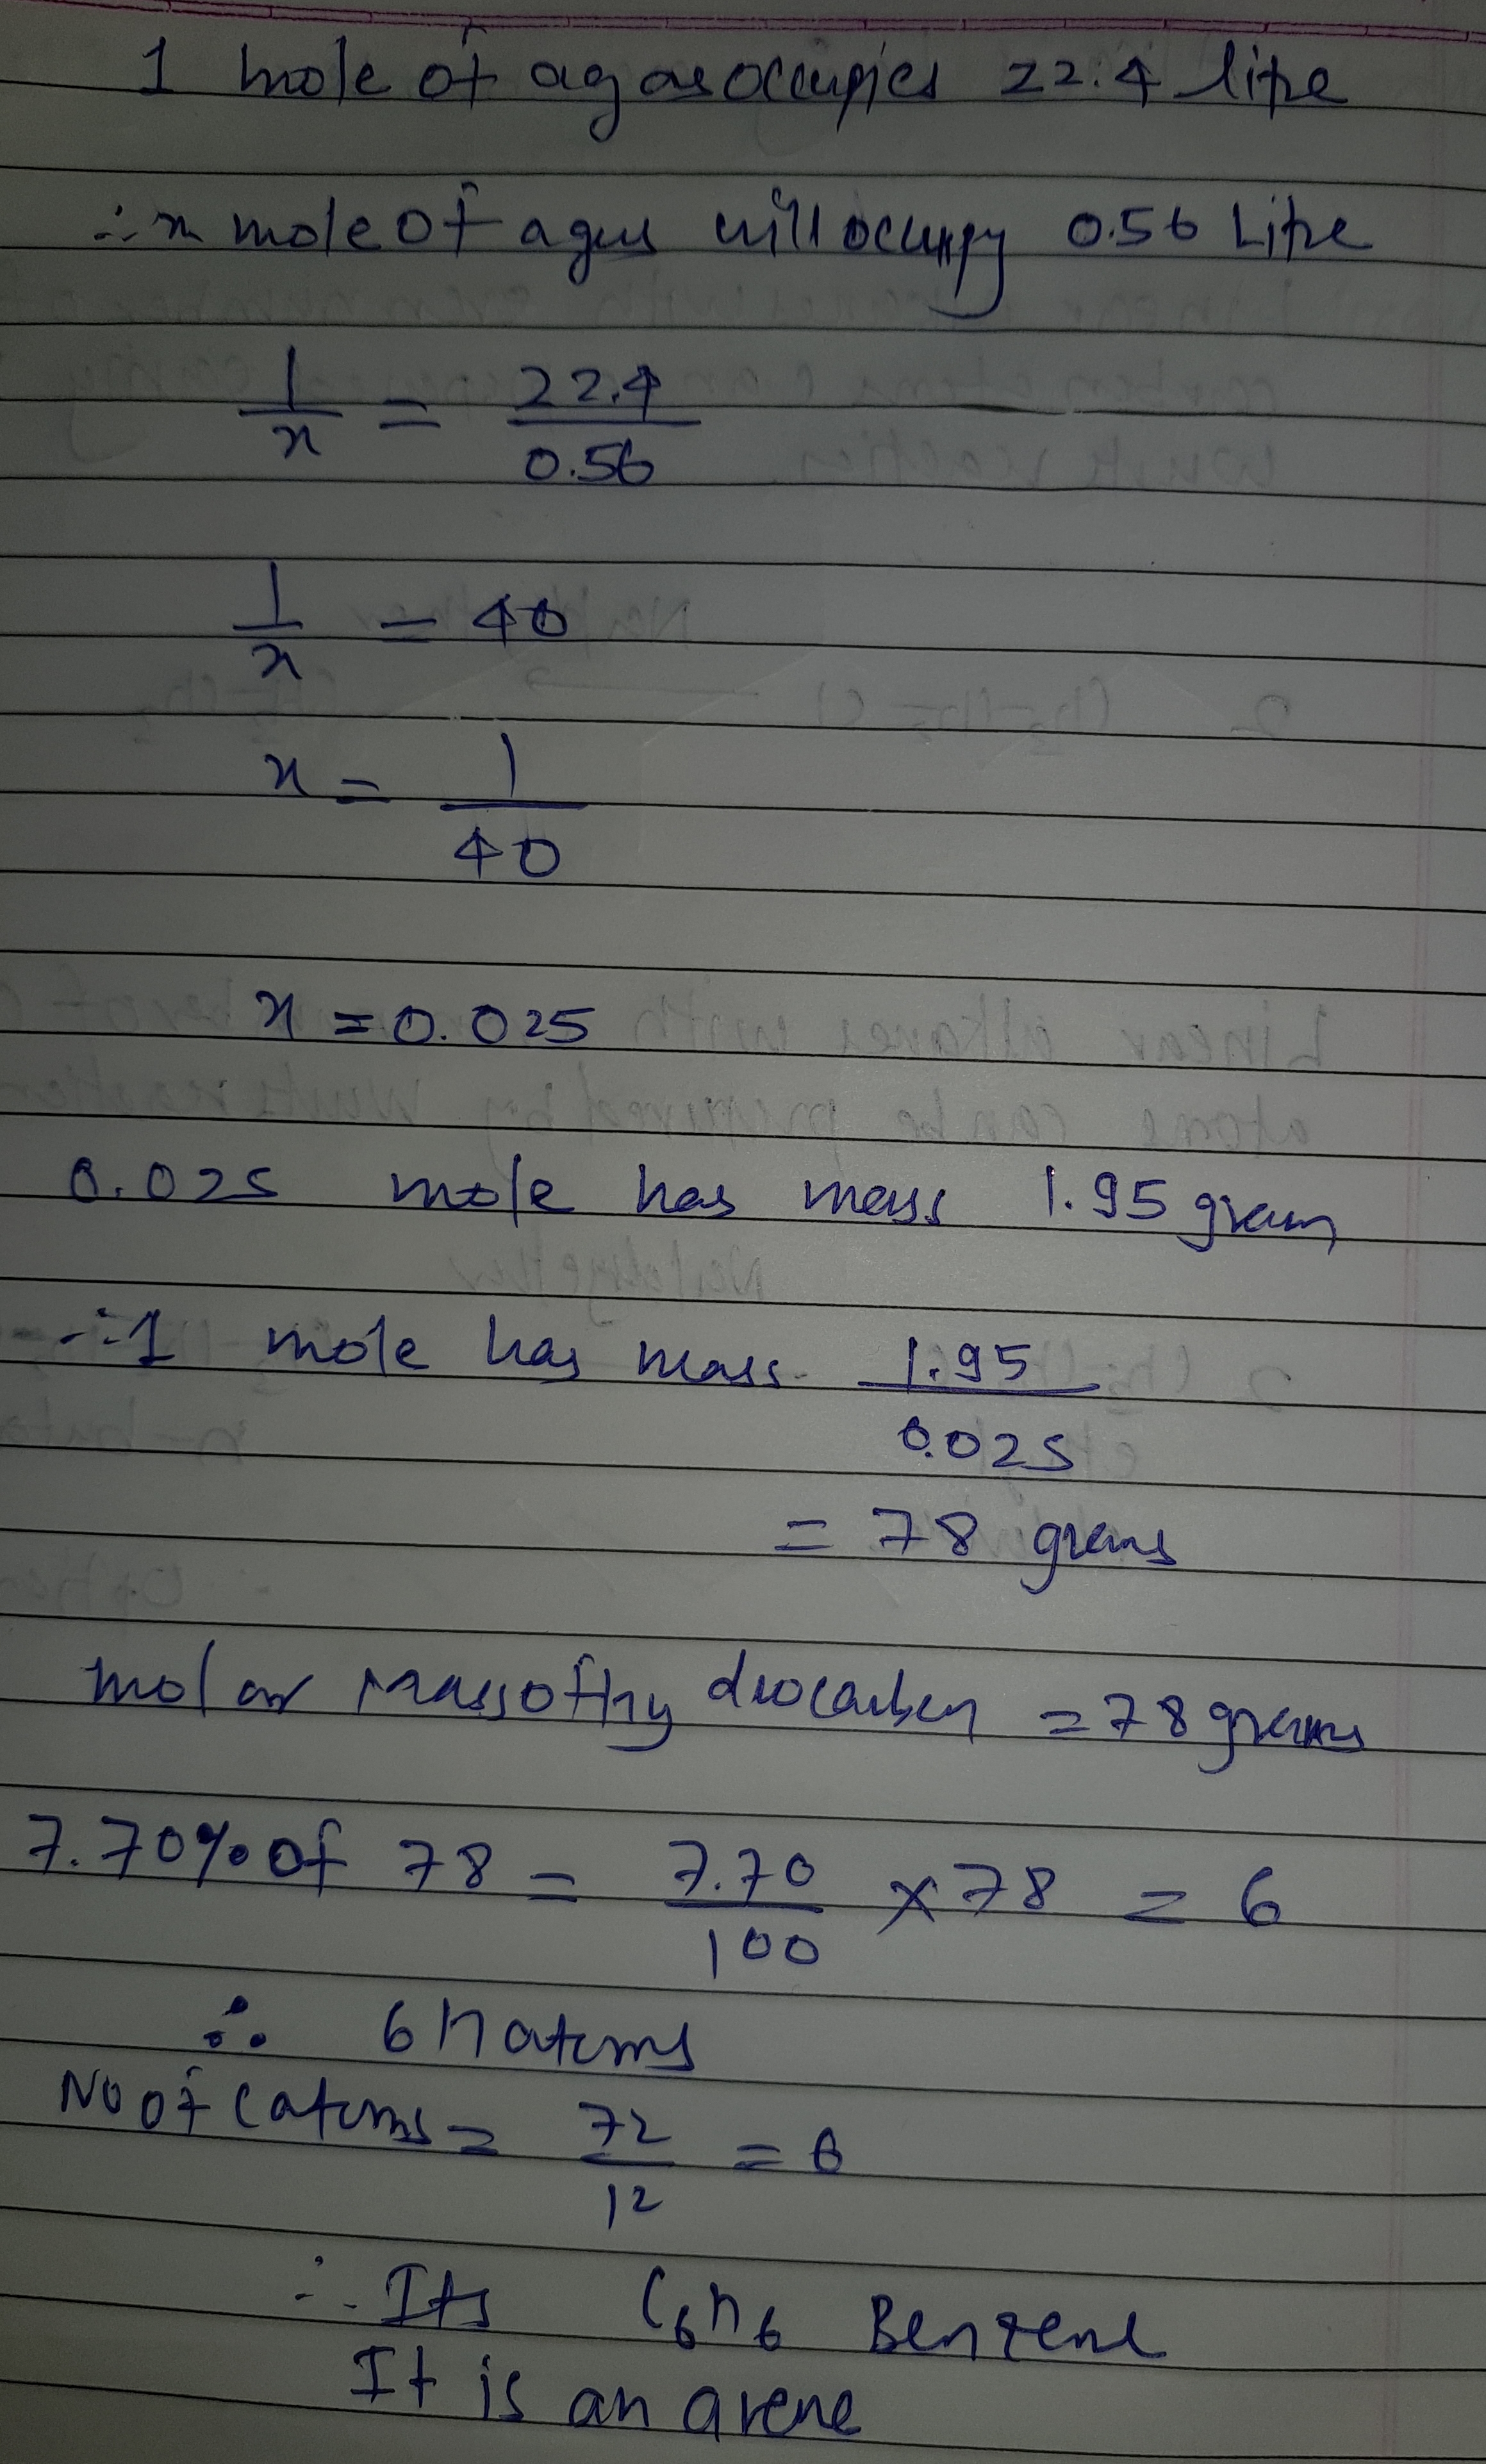 1 mole of a gas occupies 22.4 litre
∴ x mole of a gas will occupy 0.56 Litre
1/x = 22.4/0.56
1/x = 40
x = 1/40
x = 0.025
0.025 mole has mass 1.95 gram
∴ 1 mole has mass 1.95/0.025
= 78 grams
molar mass of hydrocarbon = 78 grams
7.70% of 78 = 7.70/100 × 78 = 6
∴ 6 H atoms
No of C atoms = 72/12 = 6
∴ Its C6H6 Benzene
It is an arene